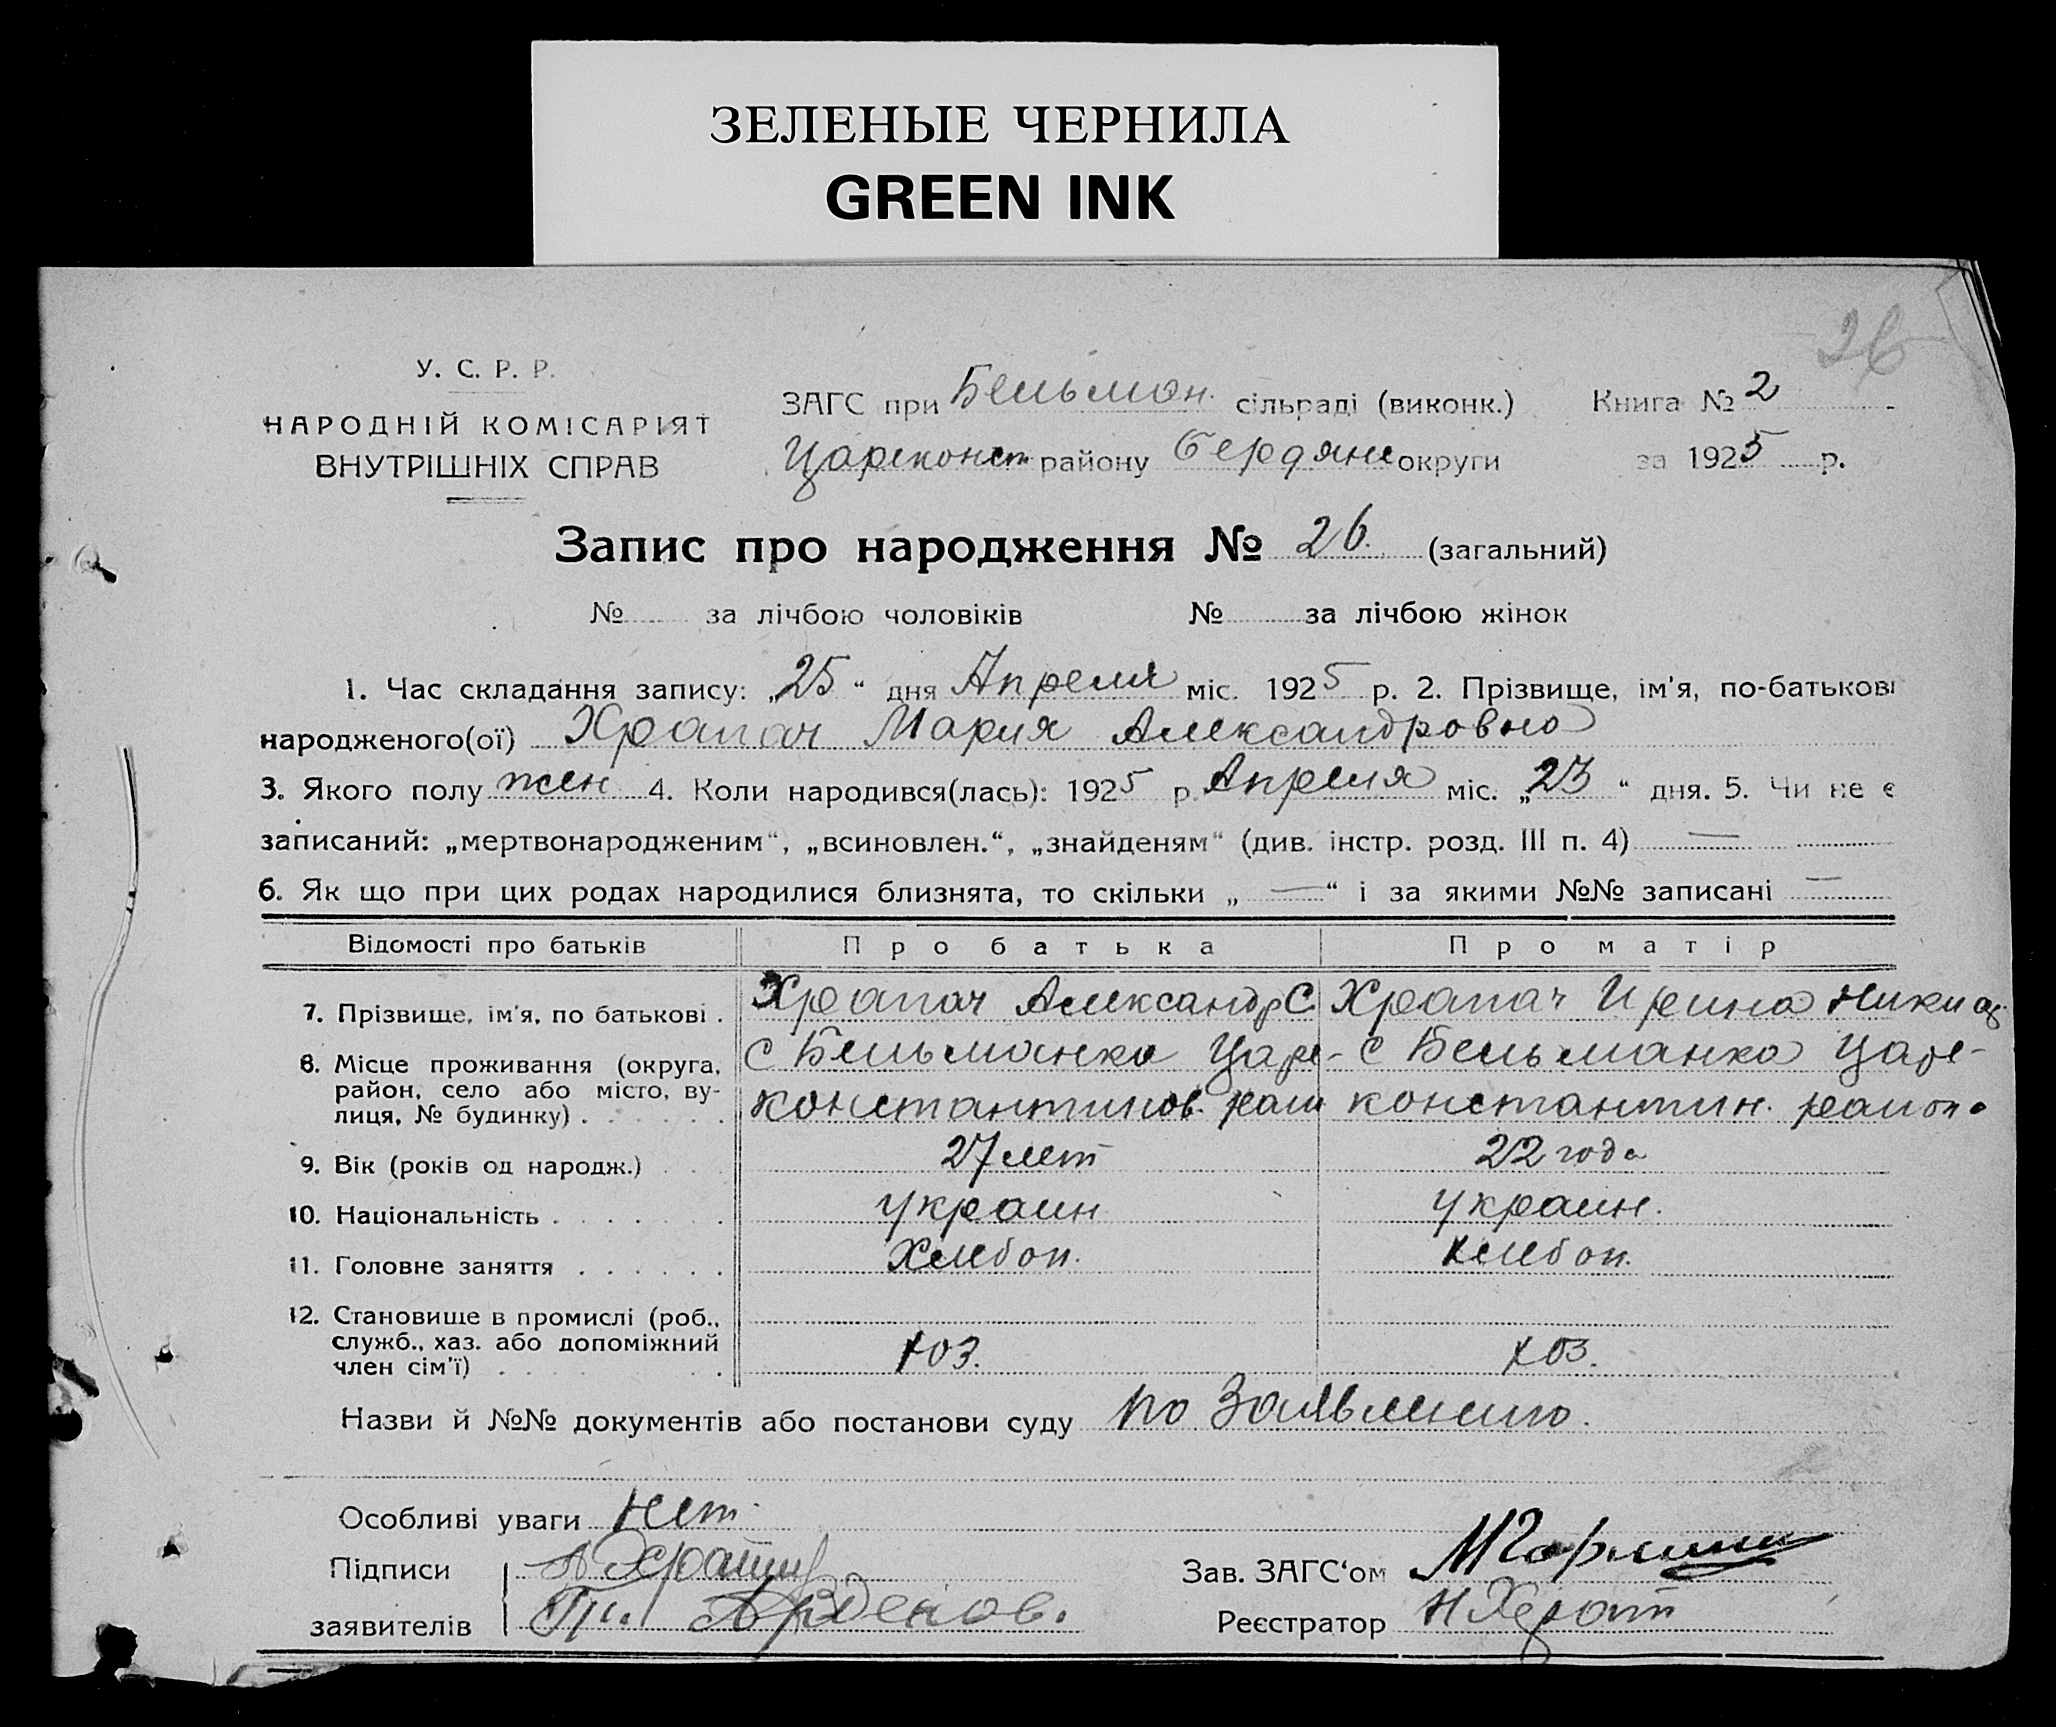 ЗЕЛЕНЫЕ ЧЕРНИЛА
GREEN INK
26
У. С. Р. Р.
НАРОДНІЙ КОМІСАРІЯТ
ВНУТРІШНІХ СПРАВ
ЗАГС при Бельман. сільраді (виконк.) Книга № 2
Цареконст району Бердянс округи за 1925 р.
Запис про народження № 26. (загальний)
№ за лічбою чоловіків № за лічбою жінок
1. Час складання запису: „25“ дня Апреля міс. 1925 р. 2. Прізвище, ім'я, по-батькові
народженого(ої) Храпач Мария Александровна
3. Якого полу жен 4. Коли народився(лась): 1925 р. Апреля міс. „23“ дня. 5. Чи не є
записаний: „мертвонародженим“, „всиновлен.“, „знайденям“ (див. інстр. розд. III п. 4) —
6. Як що при цих родах народилися близнята, то скільки „—“ і за якими №№ записані —
Відомості про батьків Про батька Про матір
7. Прізвище, ім'я, по батькові . Храпач Александр С Храпач Ирина
8. Місце проживання (округа, район, село або місто, вулиця, № будинку) . . . . . . с Бельманка Царе- с Бельманка Царе-
константинов. райн константин. район.
9. Вік (років од народж.) . . . 27 лет 22 года
10. Національність . . . . . . . украин украин.
11. Головне заняття . . . . . . хлебоп. хлебоп.
12. Становище в промислі (роб., служб., хаз. або допоміжний член сім'ї) . . . . хоз. хоз.
Назви й №№ документів або постанови суду по Заявлению.
Особливі уваги нет.
Підписи
заявителів
Зав. ЗАГС‘ом
Реєстратор